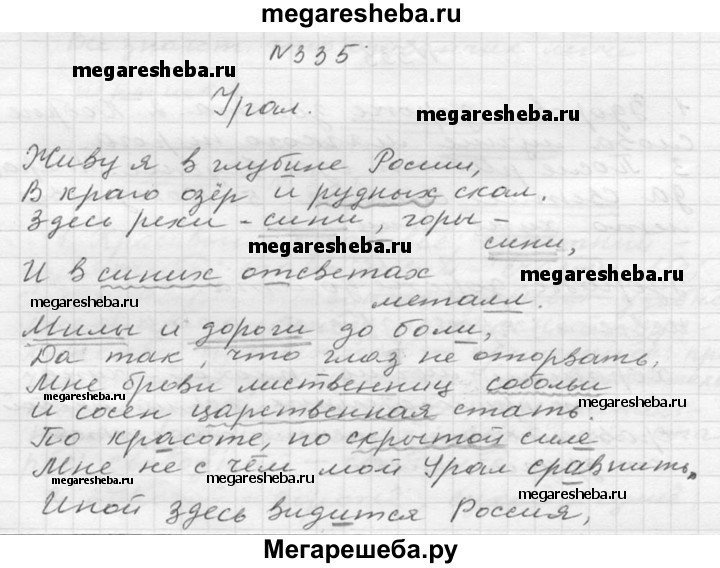 megaresheba.ru
№335
megaresheba.ru
megaresheba.ru
Урал.
Живу я в глубине России,
В краю озёр и рудных скал.
Здесь реки - сини, горы -
megaresheba.ru
сини,
megaresheba.ru
И в синих отсветах
megaresheba.ru
металл.
megaresheba.ru
Милы и дороги до боли,
Да так, что глаз не оторвать,
Мне брови лиственниц собольи
megaresheba.ru
megaresheba.ru
И сосен царственная стать.
По красоте, по скрытой силе
Мне не с чем мой Урал сравнить.
megaresheba.ru
megaresheba.ru
Иной здесь видится Россия,
Мегарешеба.ру